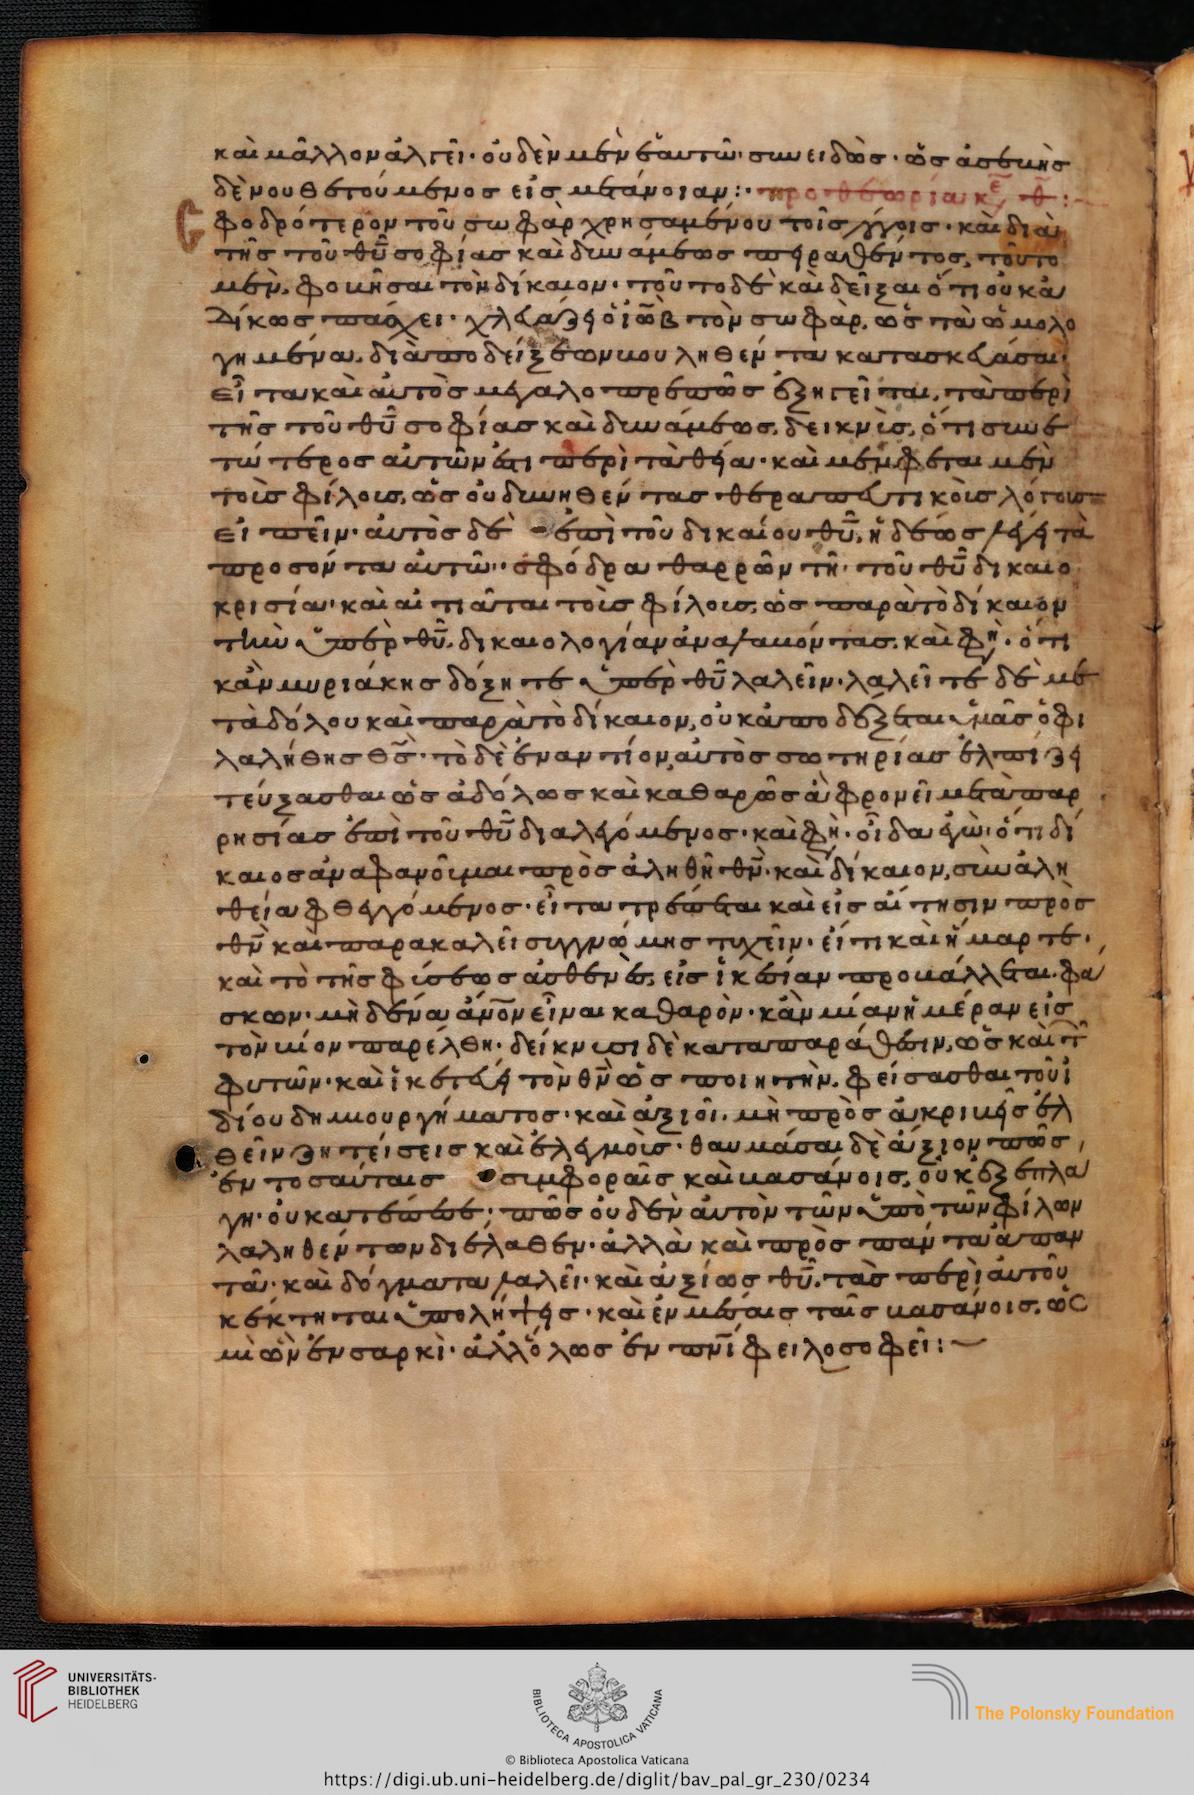 καὶ μᾶλλον ἀλγεῖ· οὐδὲν μὲν ἑαυτῶ συνειδὼς· ὡς ἀσεβὴς
δὲ νουθετούμενος εἰς μετάνοιαν:· προθεωρία κε θ:
Σφοδρότερον τοῦ σωφὰρ χρησαμένου τοῖς λόγοις· καὶ διὰ
τῆς τοῦ θυ σοφίας καὶ δυνάμεως πειραθέντος, τοῦτο
μὲν, φοβῆσαι τὸν δίκαιον· τοῦτο δὲ καὶ δεῖξαι ὅτι οὐκ ἀ
δίκως πάσχει· χλευάζει ὁ ἰὼβ τὸν σωφὰρ, ὡς τὰ ὡμολο
γημένα, δι ἀποδείξεων βουληθέντα κατασκευάσαι·
εἶτα καὶ αὐτὸς μεγαλοπρεπῶς ἐξηγεῖται, τὰ περὶ
τῆς τοῦ θυ σοφίας καὶ δυνάμεως, δεικνὺς, ὅτι συνε
τώτερος αὐτῶν ἐστι περὶ τὰ θεῖα· καὶ μέμφεται μὲν
τοῖς φίλοις, ὡς οὐ δυνηθέντας θεραπευτικοὺς λόγους
εἰπεῖν· αὐτὸς δὲ ἐπὶ τοῦ δικαίου θυ, ἡδέως λέγει τὰ
προσόντα αὐτῶ· σφόδρα θαρρῶν τῆ τοῦ θυ δικαιο
κρισία· καὶ αἰτιᾶται τοῖς φίλοις, ὡς παρὰ τὸ δίκαιον
τὴν ὑπὲρ θυ δικαιολογίαν ἀναλαβόντας. καὶ φὴ· ὅτι
κἂν μυριάκης δόξητε ὑπὲρ θυ λαλεῖν· λαλεῖτε δὲ με
τὰ δόλου καὶ παρὰ τὸ δίκαιον, οὐκ ἀποδέξεται ὑμᾶς ὁ φι
λαλήθης θς· τὸ δὲ ἐναντίον, αὐτὸς σωτηρίας ἐλπίζει
τεύξασθαι ὡς ἀδόλως καὶ καθαρῶς ἃ φρονεῖ μετὰ παρ
ρησίας ἐπὶ τοῦ θυ διαλεγόμενος· καὶ φὴ· οἶδα ἐγὼ· ὅτι δί
καιος ἀναφανοῦμαι πρὸς ἀληθῆ θν· καὶ δίκαιον, σὺν ἀλη
θεία φθεγγόμενος· εἶτα τρέπεται καὶ εἰς αἴτησιν πρὸς
θν καὶ παρακαλεῖ συγγνώμης τυχεῖν· εἴ τι καὶ ἥμαρτε·
καὶ τὸ τῆς φύσεως ἀσθενὲς, εἰς ἱκεσίαν προβάλλεται· φά
σκων· μὴδένα ἀνον εἶναι καθαρὸν· κἂν μίαν ἡμέραν εἰς
τὸν βίον παρέλθη· δείκνυσι δὲ κατὰ παράθεσιν, ὡς καὶ τ
φυτῶν· καὶ ἱκετεύει τὸν θν ὡς ποιητὴν, φείσασθαι τοῦ ἰ
δίου δημιουργήματος· καὶ ἀξιοῖ, μὴ πρὸς ἀκριβεῖς ἐλ
θεῖν ζητείσεις καὶ ἐλεγμοὺς· θαυμάσαι δὲ ἄξιον πῶς
ἐν τοσαύταις συμφοραῖς καὶ βασάνοις, οὐκ ἐξεπλά
γη· οὐ κατέπεσε· πῶς οὐδὲν αὐτὸν τῶν ὑπὸ τῶν φίλων
λαληθέντων διέλαθεν· ἀλλὰ καὶ πρὸς πάντα ἀπαν
τᾶ· καὶ δόγματα λαλεῖ· καὶ ἀξίως θυ, τὰς περὶ αὐτοῦ
κέκτηται ὑπολήψεις· καὶ ἐν μέσαις ταῖς βασάνοις, ὡς
μὴ ὢν ἐν σαρκὶ· ἀλλ ὅλως ἐν πνι φειλοσοφεῖ:
UNIVERSITÄTS-
BIBLIOTHEK
HEIDELBERG
BIBLIOTECA APOSTOLICA VATICANA
The Polonsky Foundation
© Biblioteca Apostolica Vaticana
https://digi.ub.uni-heidelberg.de/diglit/bav_pal_gr_230/0234